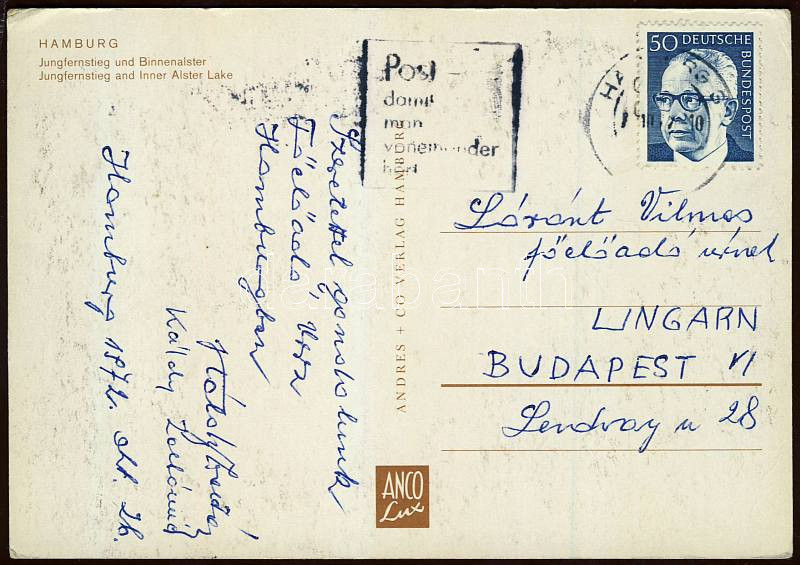 HAMBURG
Jungfernstieg und Binnenalster
Jungfernstieg and Inner Alster Lake
Post
damit
man
voneinander
hört
50 DEUTSCHE
BUNDESPOST
Szeretettel gondolunk
Főelőadó Úrra
Hamburgban
Káldy Zoltánné
Hamburg 1972. okt. 26.
ANDRES + CO VERLAG HAMBURG
Lóránt Vilmos
főelőadó úrnak
UNGARN
BUDAPEST VI
Lendvay u 28
ANCO
Lux